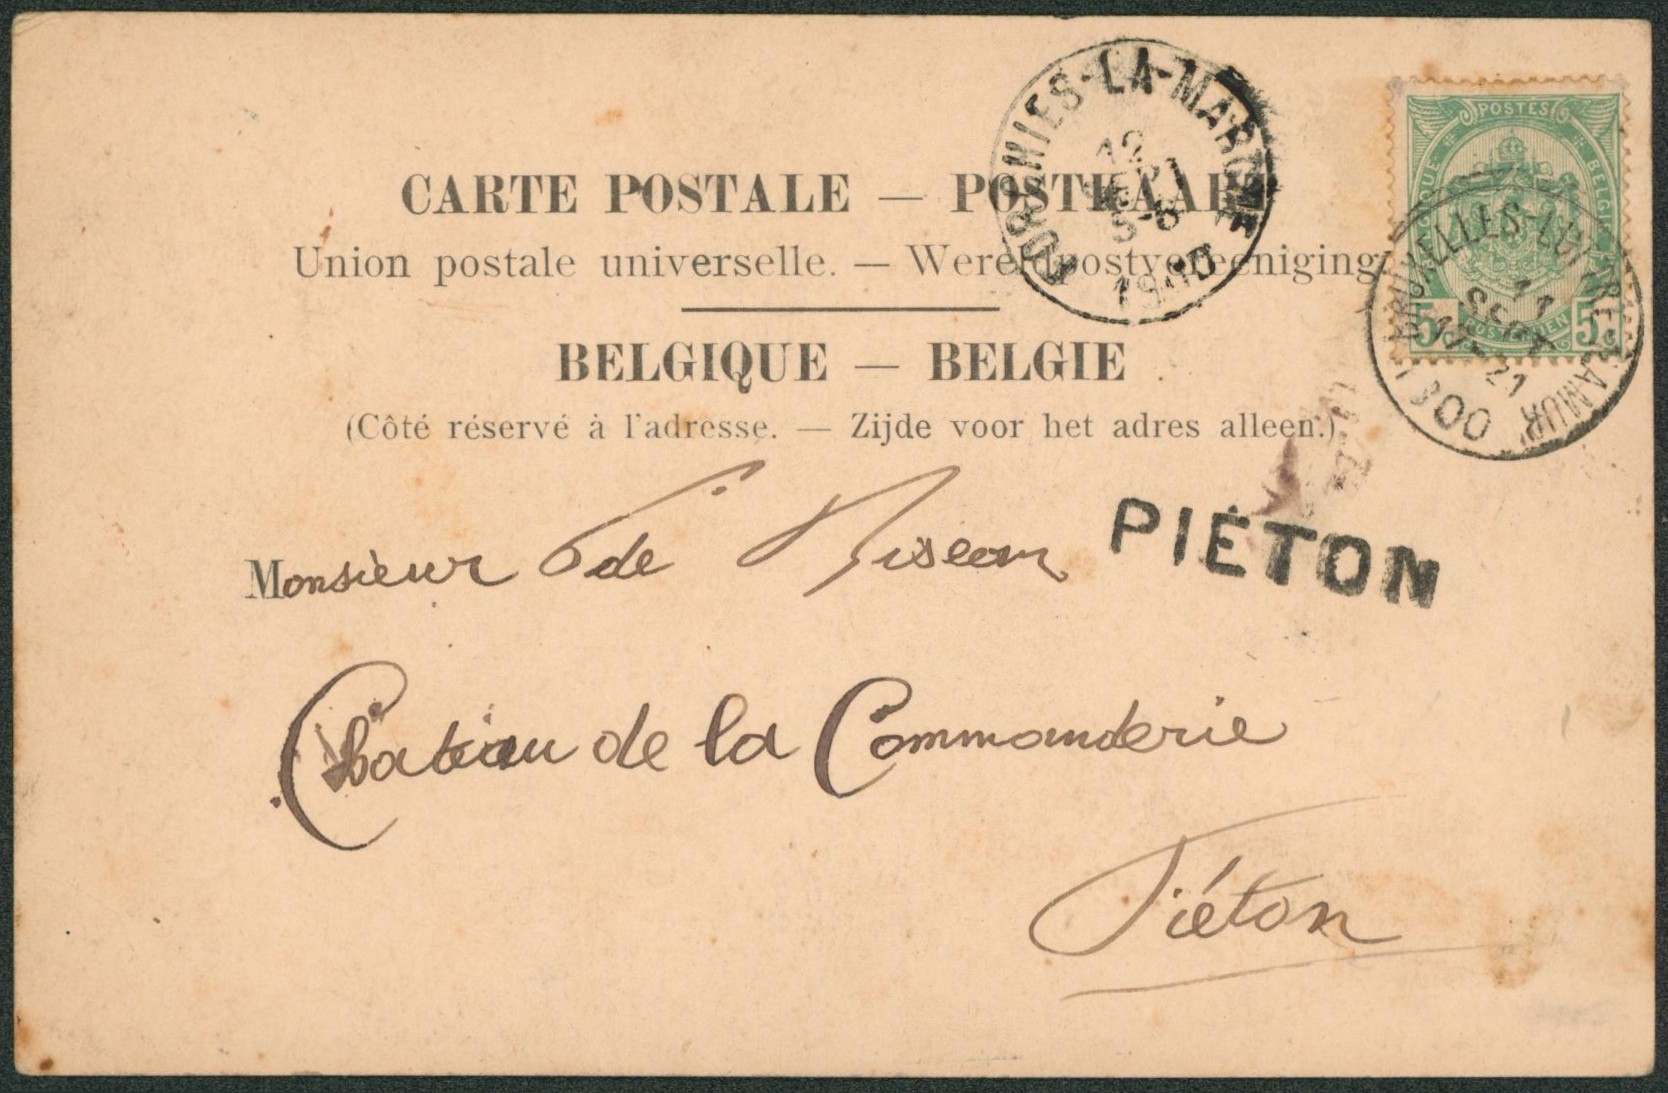 CARTE POSTALE — POSTKAART
Union postale universelle. — Wereldpostvereeniging
BELGIQUE — BELGIE
(Côté réservé à l'adresse. — Zijde voor het adres alleen.)
FORCHIES-LA-MARCHE
12
SEPT
5-6
1900
POSTES
BELGIQUE BELGIE
5 5
BRUXELLES-LUTTRE-NAMUR
11
SEPT
1900
PIÉTON
Monsieur de
Chateau de la Commanderie
Piéton